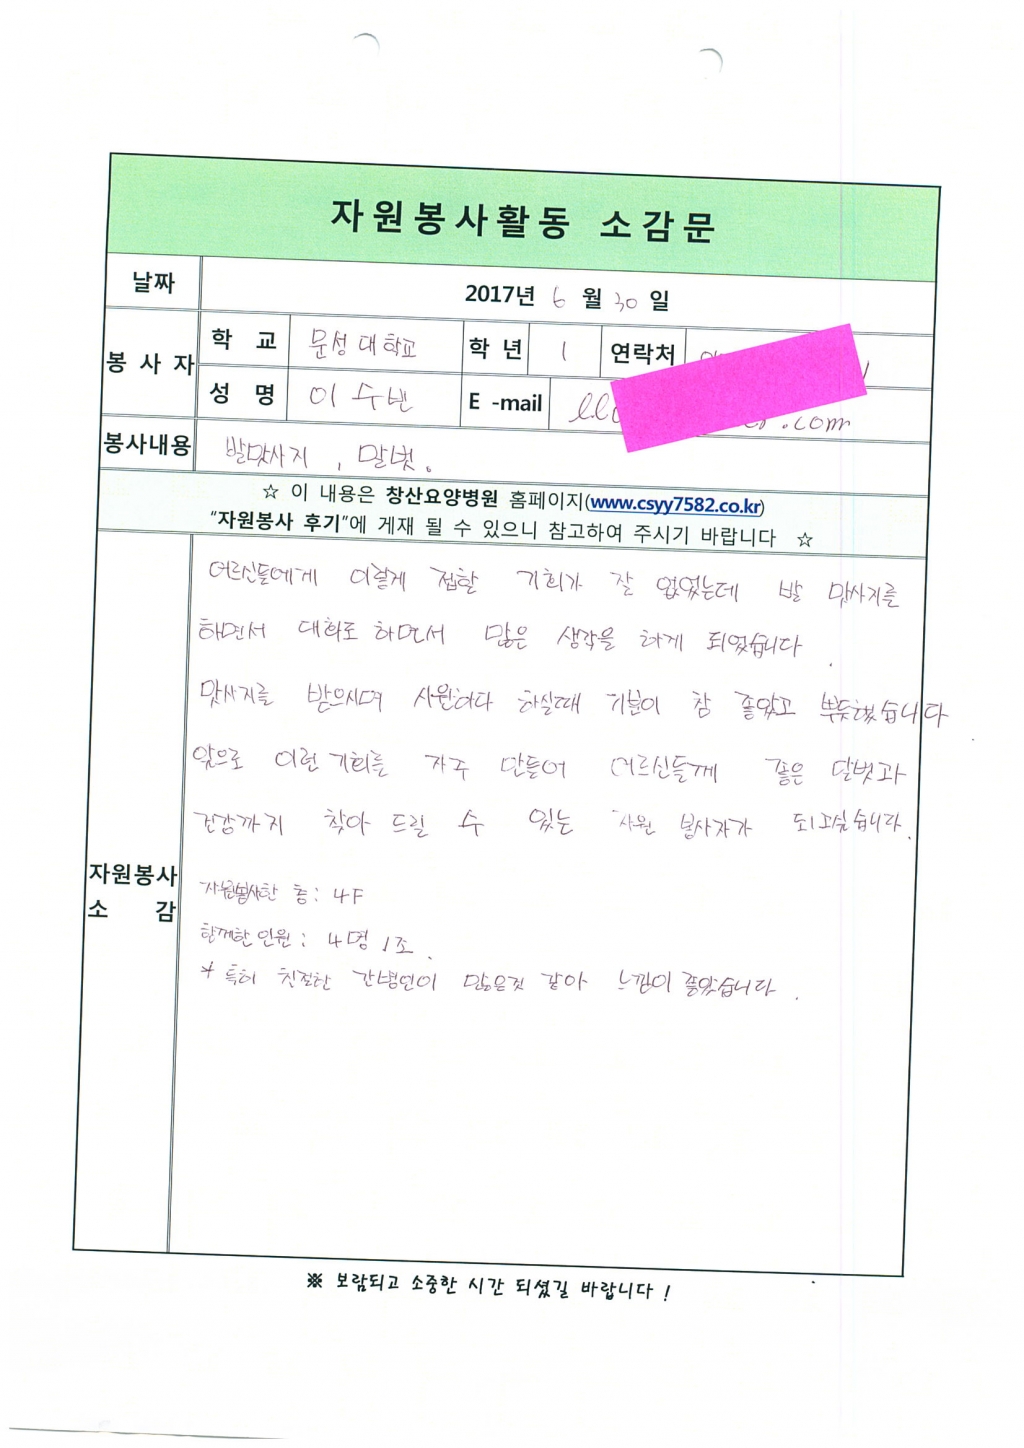 자원봉사활동 소감문
날짜 2017년 6 월 30 일
봉 사 자 학 교 문성대학교 학 년 1 연락처
성 명 이수빈 E -mail .com
봉사내용 발맛사지 , 말벗.
☆ 이 내용은 창산요양병원 홈페이지(www.csyy7582.co.kr)
“자원봉사 후기”에 게재 될 수 있으니 참고하여 주시기 바랍니다 ☆
어르신들에게 이렇게 접할 기회가 잘 없었는데 발 맛사지를
하면서 대화도 하면서 많은 생각을 하게 되었습니다.
맛사지를 받으시며 시원하다 하실때 기분이 참 좋았고 뿌듯했습니다
앞으로 이런 기회를 자주 만들어 어르신들께 좋은 말벗과
건강까지 찾아 드릴 수 있는 자원 봉사자가 되고싶습니다.
자원봉사
소 감
자원봉사한 층 : 4F
함께한 인원 : 4명 1조.
* 특히 친절한 간병인이 많은것 같아 느낌이 좋았습니다.
※ 보람되고 소중한 시간 되셨길 바랍니다 !